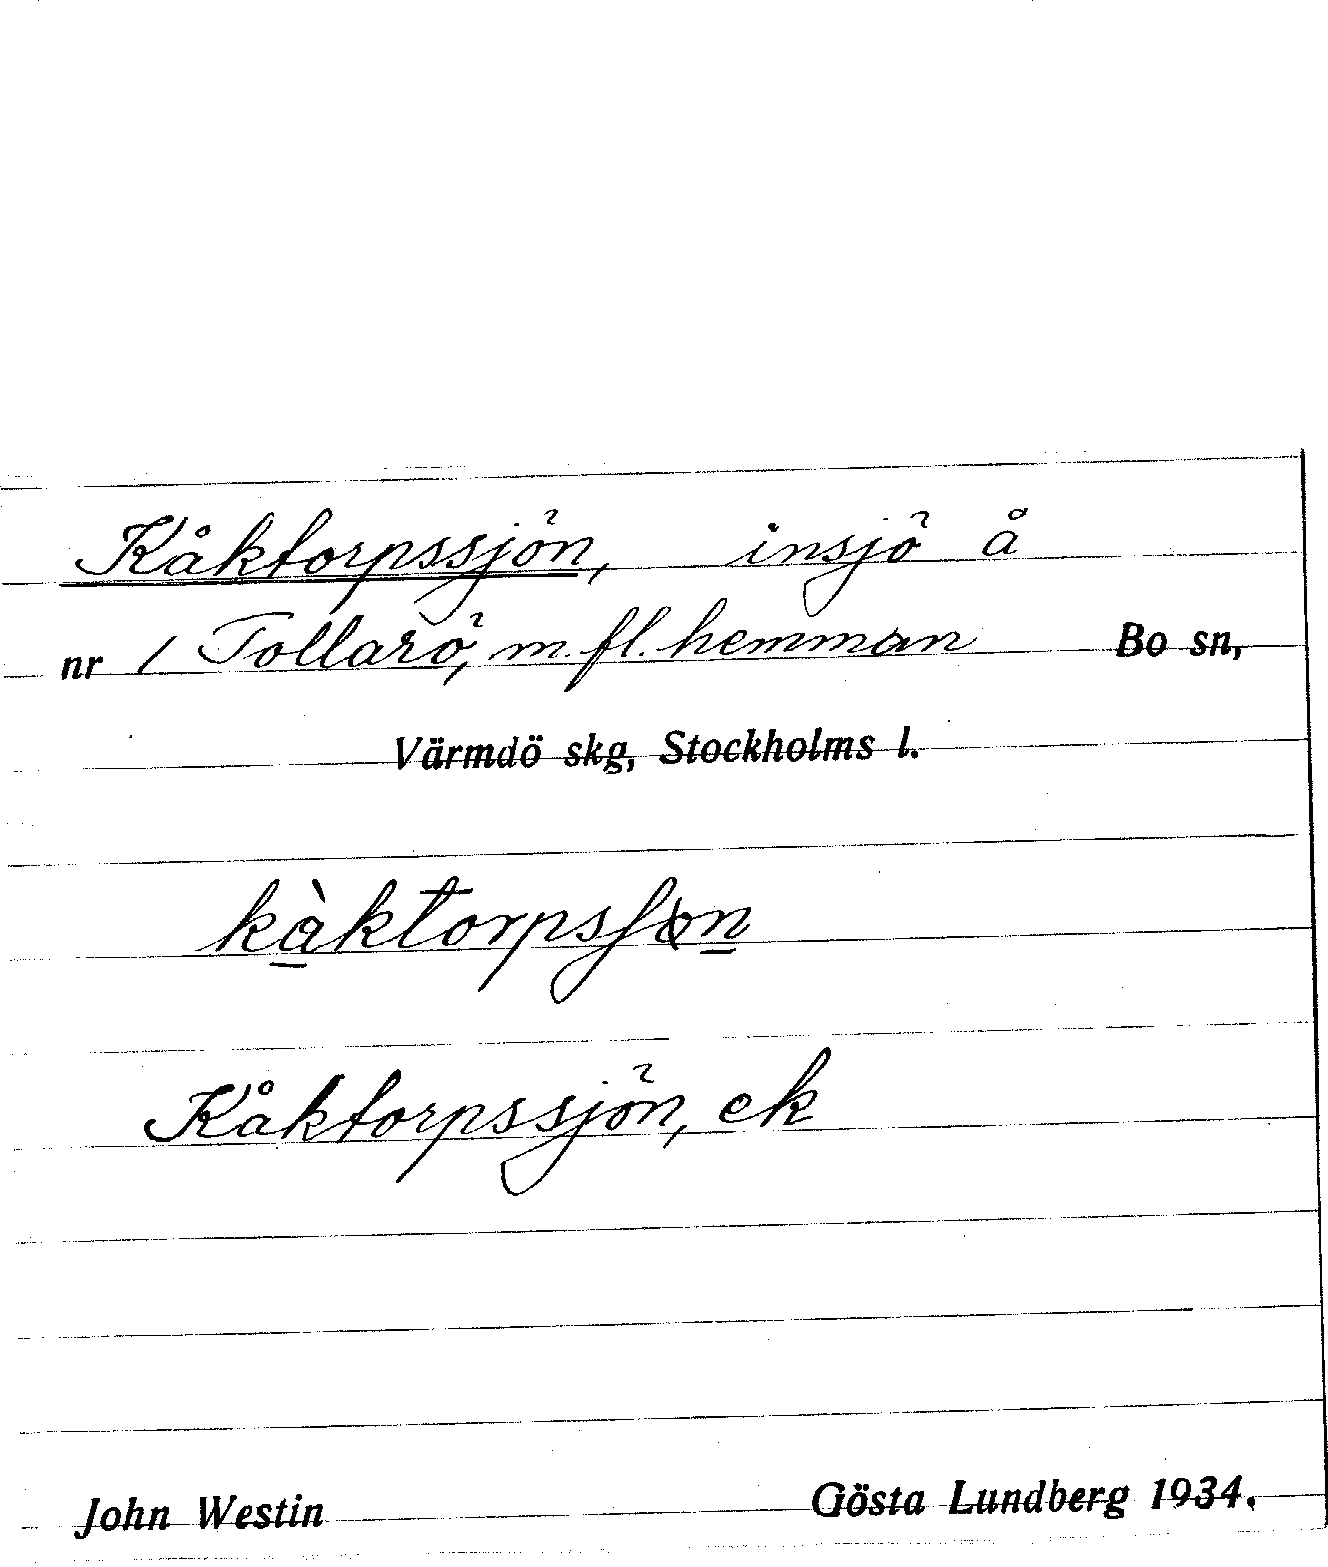 Kåktorpssjön, insjö å
nr 1 Tollarö, m. fl. hemman Bo sn,
Värmdö skg, Stockholms l.
kàktorpsʃøn
Kåktorpssjön, ek
John Westin Gösta Lundberg 1934.